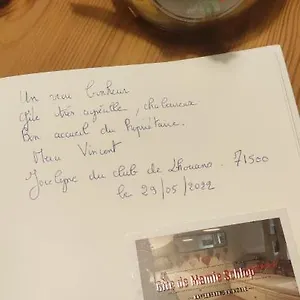 Un vrai bonheur
gîte très agréable, chaleureux
Bon accueil du Propriétaire.
Merci Vincent
du club de Lhouans. 71500
le 29/05/2022
Gîte de Mamie